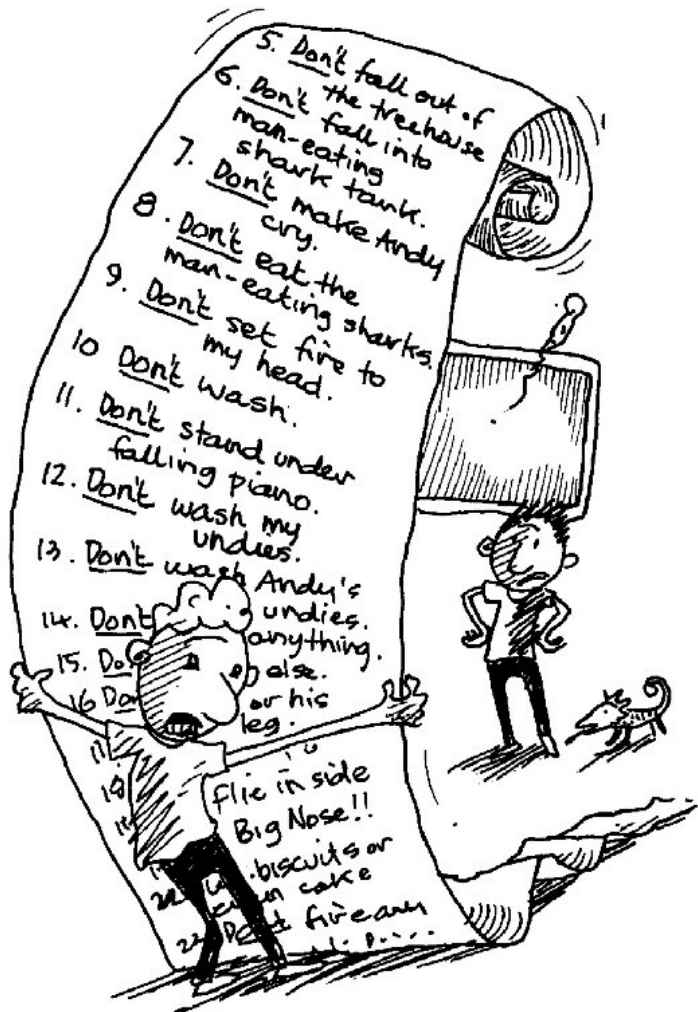 5. Don't fall out of
the treehouse
6. Don't fall into
man-eating
shark tank.
7. Don't make Andy
cry.
8. Don't eat the
man-eating sharks.
9. Don't set fire to
my head.
10 Don't wash.
11. Don't stand under
falling piano.
12. Don't wash my
undies.
13. Don't wash Andy's
undies.
14. Don't anything
15. else.
16 or his
leg.
in side
Big Nose!!
biscuits or
cake
fire